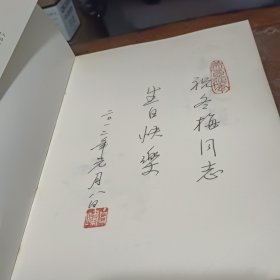 祝冬梅同志
生日快樂
二〇一二年元月八日